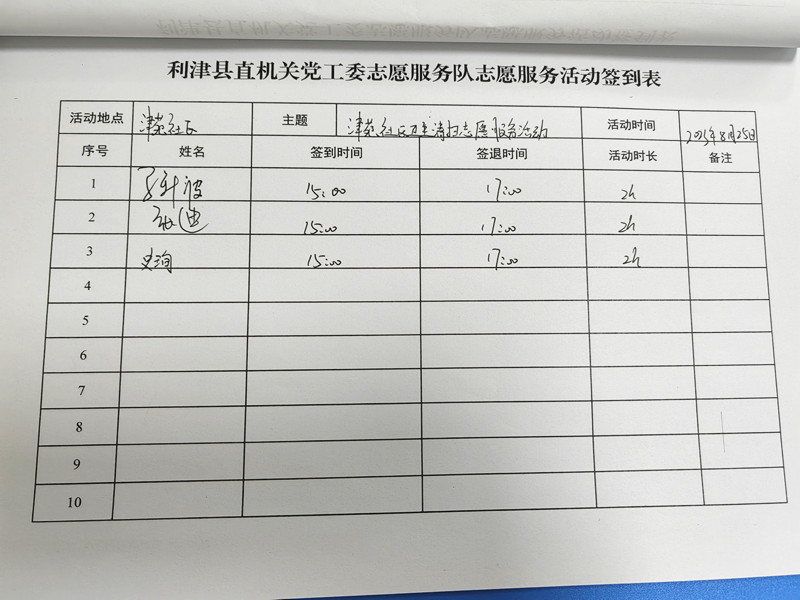 利津县直机关党工委志愿服务队志愿服务活动签到表
活动地点 津苑社区 主题 津苑社区卫生清扫志愿服务活动 活动时间 2023年8月25日
序号 姓名 签到时间 签退时间 活动时长 备注
1 15:00 17:00 2h
2 张迪 15:00 17:00 2h
3 史珣 15:00 17:00 2h
4
5
6
7
8
9
10